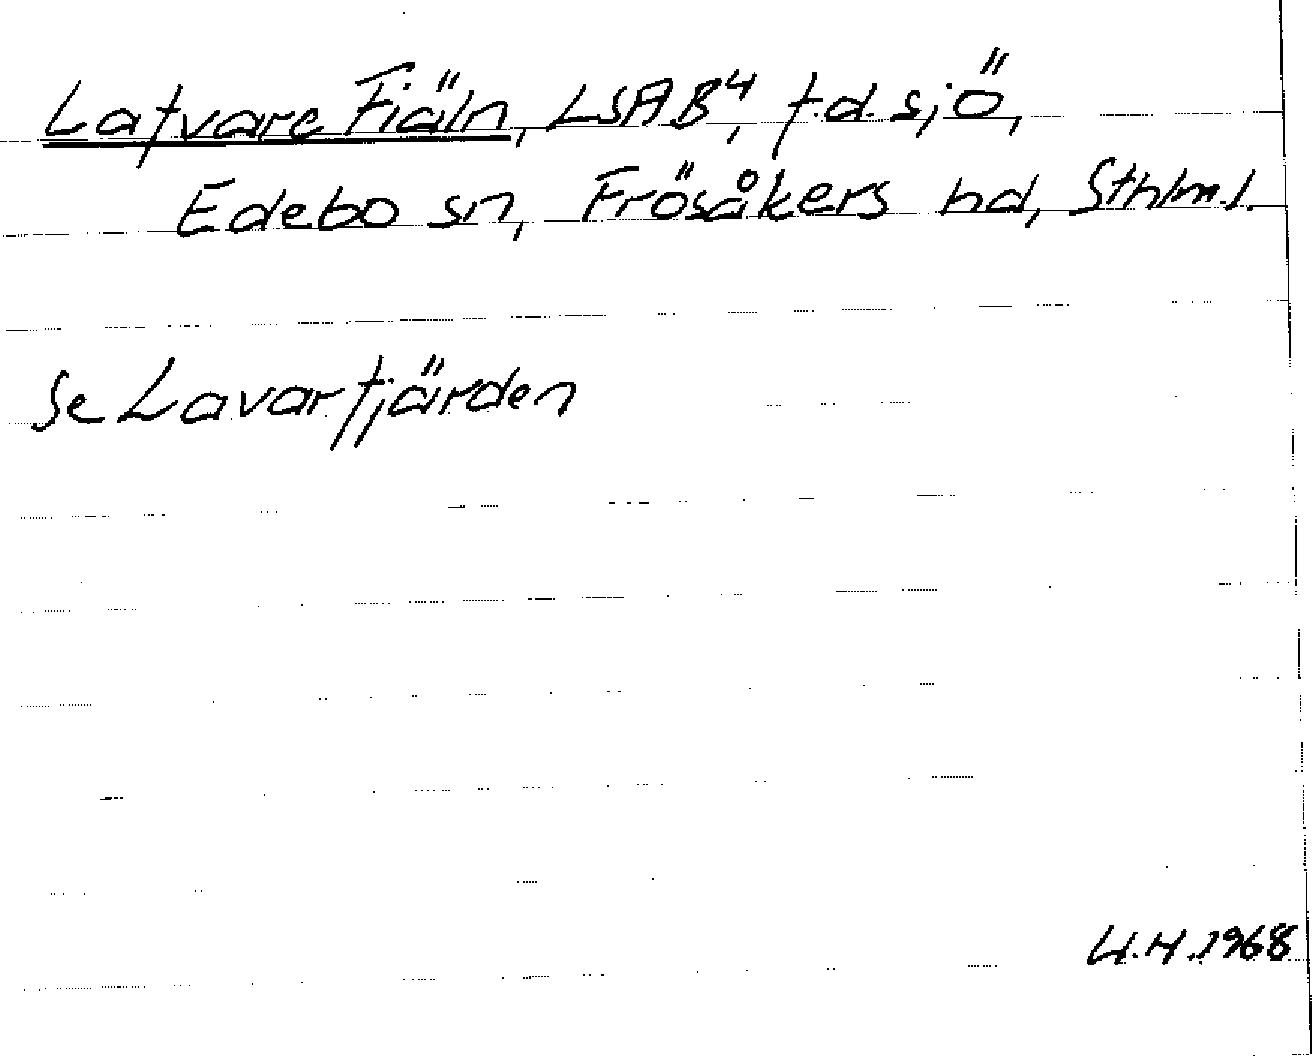 Lafvare Fiäln, LSA B⁴, f.d. sjö,
Edebo sn, Frösåkers hd, Sthlm.l.
Se Lavarfjärden
U.H. 1968